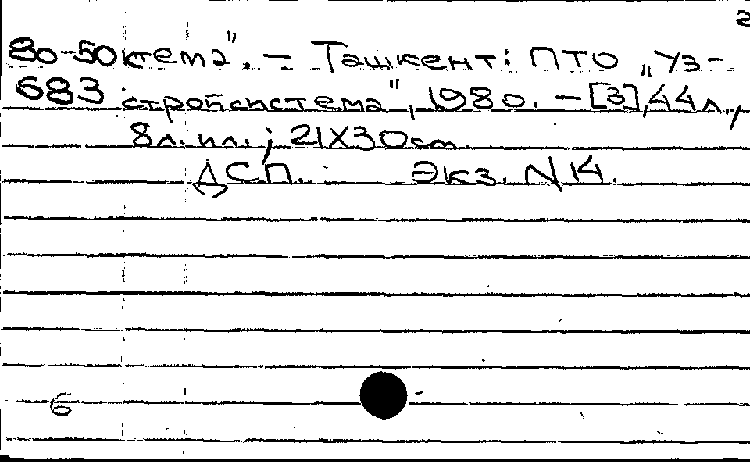 2
80-50 стема". - Ташкент: ПТО „Уз-
683 стройсистема", 1980. - [3], 44 л.,
8 л. ил.; 21X30 см.
ДСП. Экз. N 14.
6